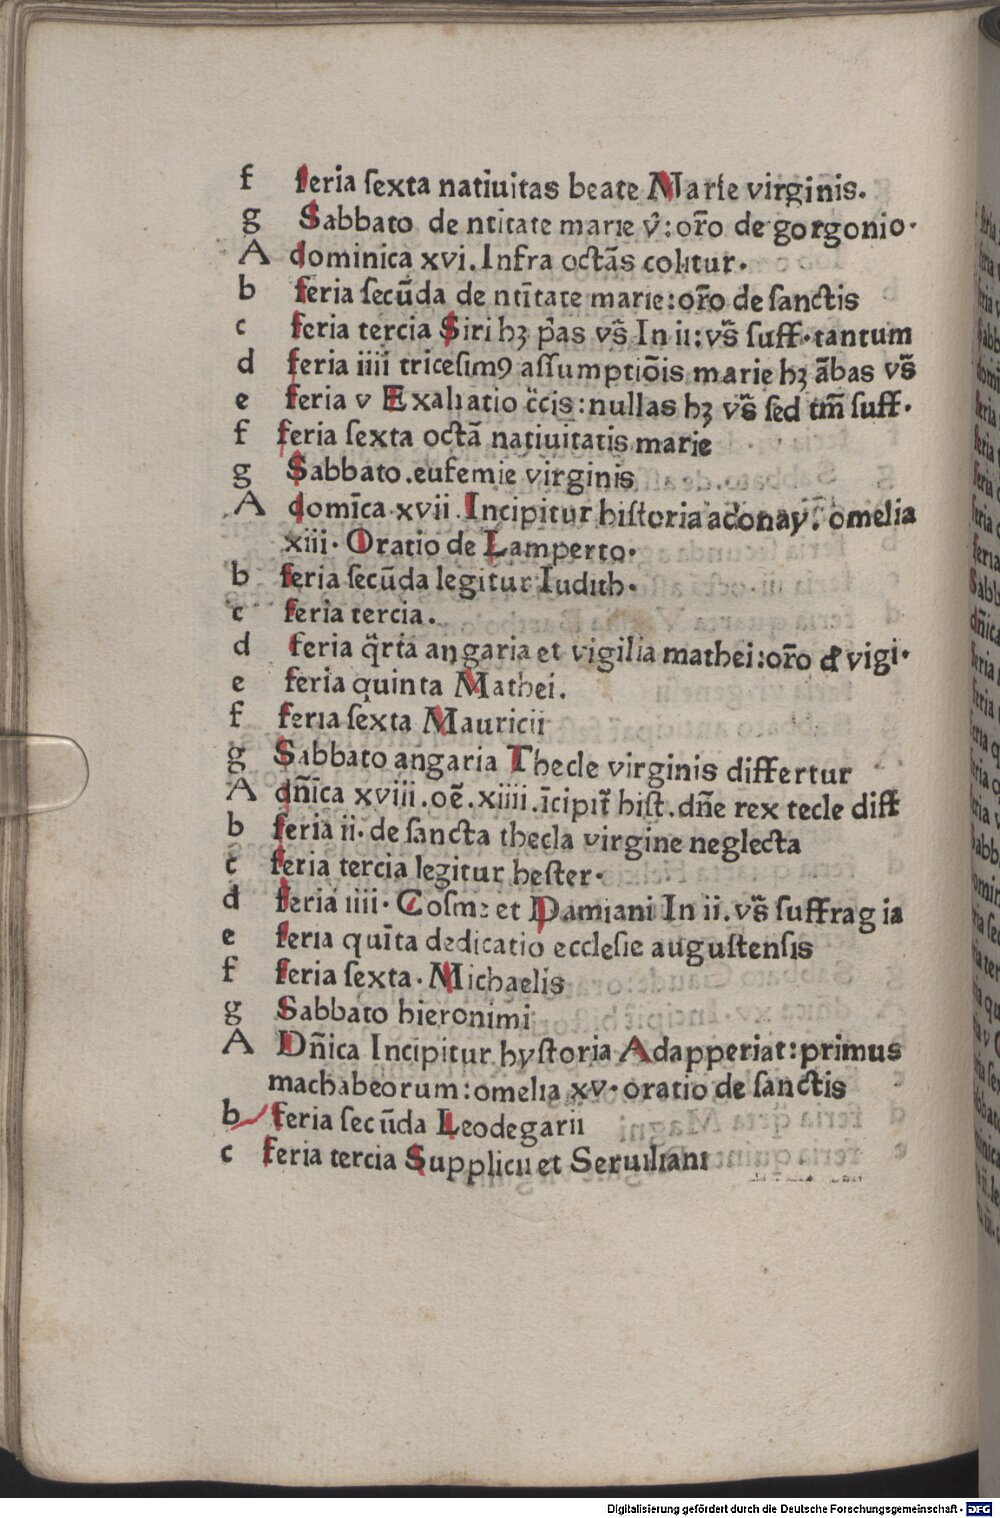 f feria ſexta natiuitas beate Marie virginis.
g Sabbato de ntitate marie v̄: or̄o de gorgonio.
A dominica xvi. Infra octās colitur.
b feria ſecūda de ntītate marie: or̄o de ſanctis
c feria tercia Siri hꝫ p̄as vs̄ In ii: vs̄ ſuff. tantum
d feria iiii triceſimꝰ aſſumptiōis marie hꝫ ābas vs̄
e feria v Exaltatio c̄cis: nullas hꝫ vs̄ ſed tm̄ ſuff.
f feria ſexta octā natiuitatis marie
g Sabbato. eufemie virginis
A domīca xvii Incipitur hiſtoria adonay. omelia
xiii. Oratio de Lamperto.
b feria ſecūda legitur Iudith.
c feria tercia.
d feria q̄rta angaria et vigilia mathei: or̄o de vigi.
e feria quinta Mathei.
f feria ſexta Mauricii
g Sabbato angaria Thecle virginis differtur
A dn̄ica xviii. oē. xiiii. īcipit᷑ hiſt. dn̄e rex tecle diff
b feria ii. de ſancta thecla virgine neglecta
c feria tercia legitur heſter.
d feria iiii. Coſme et Damiani In ii. vs̄ ſuffragia
e feria quīta dedicatio eccleſie auguſtenſis
f feria ſexta. Michaelis
g Sabbato hieronimi
A Dn̄ica Incipitur hyſtoria Adapperiat: primus
machabeorum: omelia xv. oratio de ſanctis
b feria ſecūda Leodegarii
c feria tercia Supplicii et Seruiliani
Digitalisierung gefördert durch die Deutsche Forschungsgemeinschaft - DFG